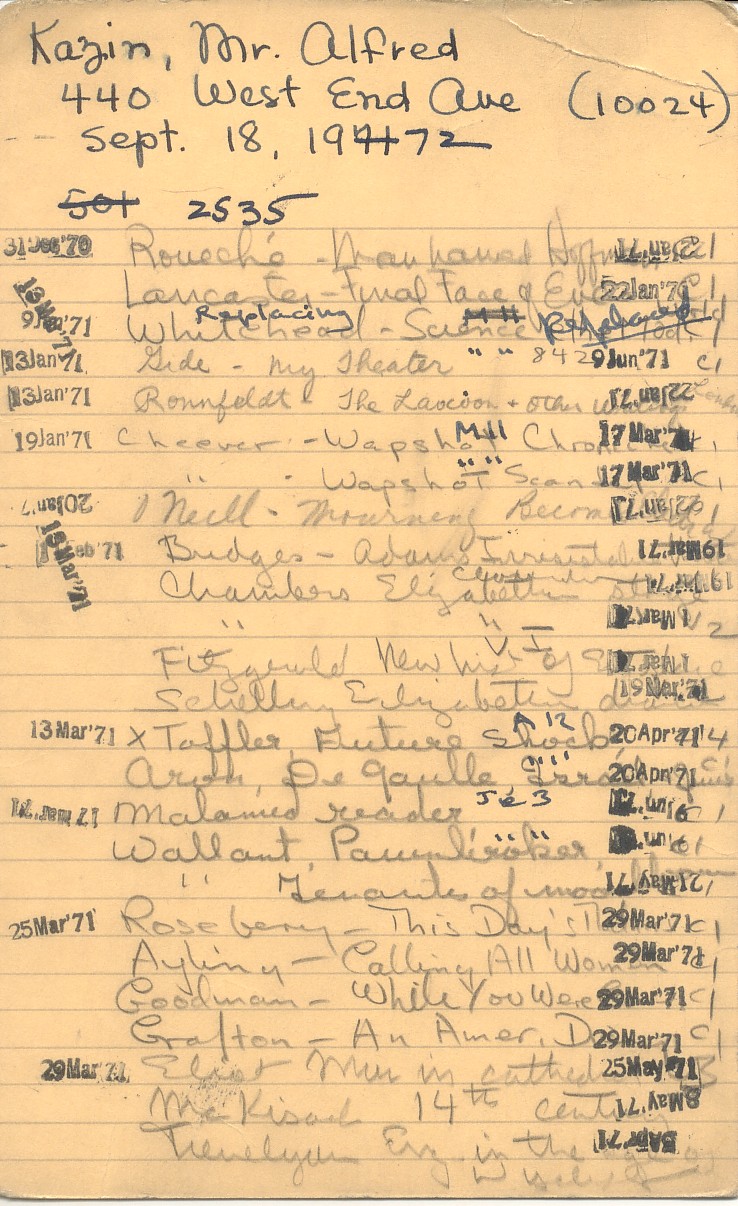 Kazin, Mr. Alfred
440 West End Ave (10024)
Sept. 18, 1971 72
501 2535
31 Dec '70 Roueché - Man named Hoffman 22 Jan '71 C1
Lancaster - Final Face of Eve 22 Jan '71 C1
13 Mar '71 Replacing MH Replaced
9 Jan '71 Whitehead - Science
13 Jan '71 Gide - My Theater " " 842 9 Jun '71 C1
13 Jan '71 Ronnfeldt - The Laocoon + other writings 22 Jan '71
19 Jan '71 Cheever - Wapshot MH Chronicle 17 Mar '71 C1
" - Wapshot " " Scandal 17 Mar '71 C1
20 Jan '71 O'Neill - Mourning Becomes 22 Jan '71
13 Mar '71
Feb '71 Bridges - Adams Irresistible 19 Mar '71
Chambers Elizabethan stage 19 Mar '71
" " V2 1 Mar '71
Fitzgerald New hist of 1 Mar '71
Schelling Elizabethan drama 19 Mar '71
13 Mar '71 X Toffler, Future Shock A 12 20 Apr '71 4
Aron, De Gaulle " " 20 Apr '71 C1
17 Mar '71 Malamud reader Je 3 Jun C1
Wallant, Pawnbroker " " Jun C1
" Tenants of moonbloom 21 May '71
25 Mar '71 Roseberry - This Day's 29 Mar '71 C1
Ayling - Calling All Women 29 Mar '71 C1
Goodman - While You Were 29 Mar '71 C1
Grafton - An Amer. D 29 Mar '71 C1
29 Mar '71 Eliot Mur in cathedral 25 May '71 3
McKisack 14th century 8 May '71
Trevelyan Eng. in the age of 5 Apr '71